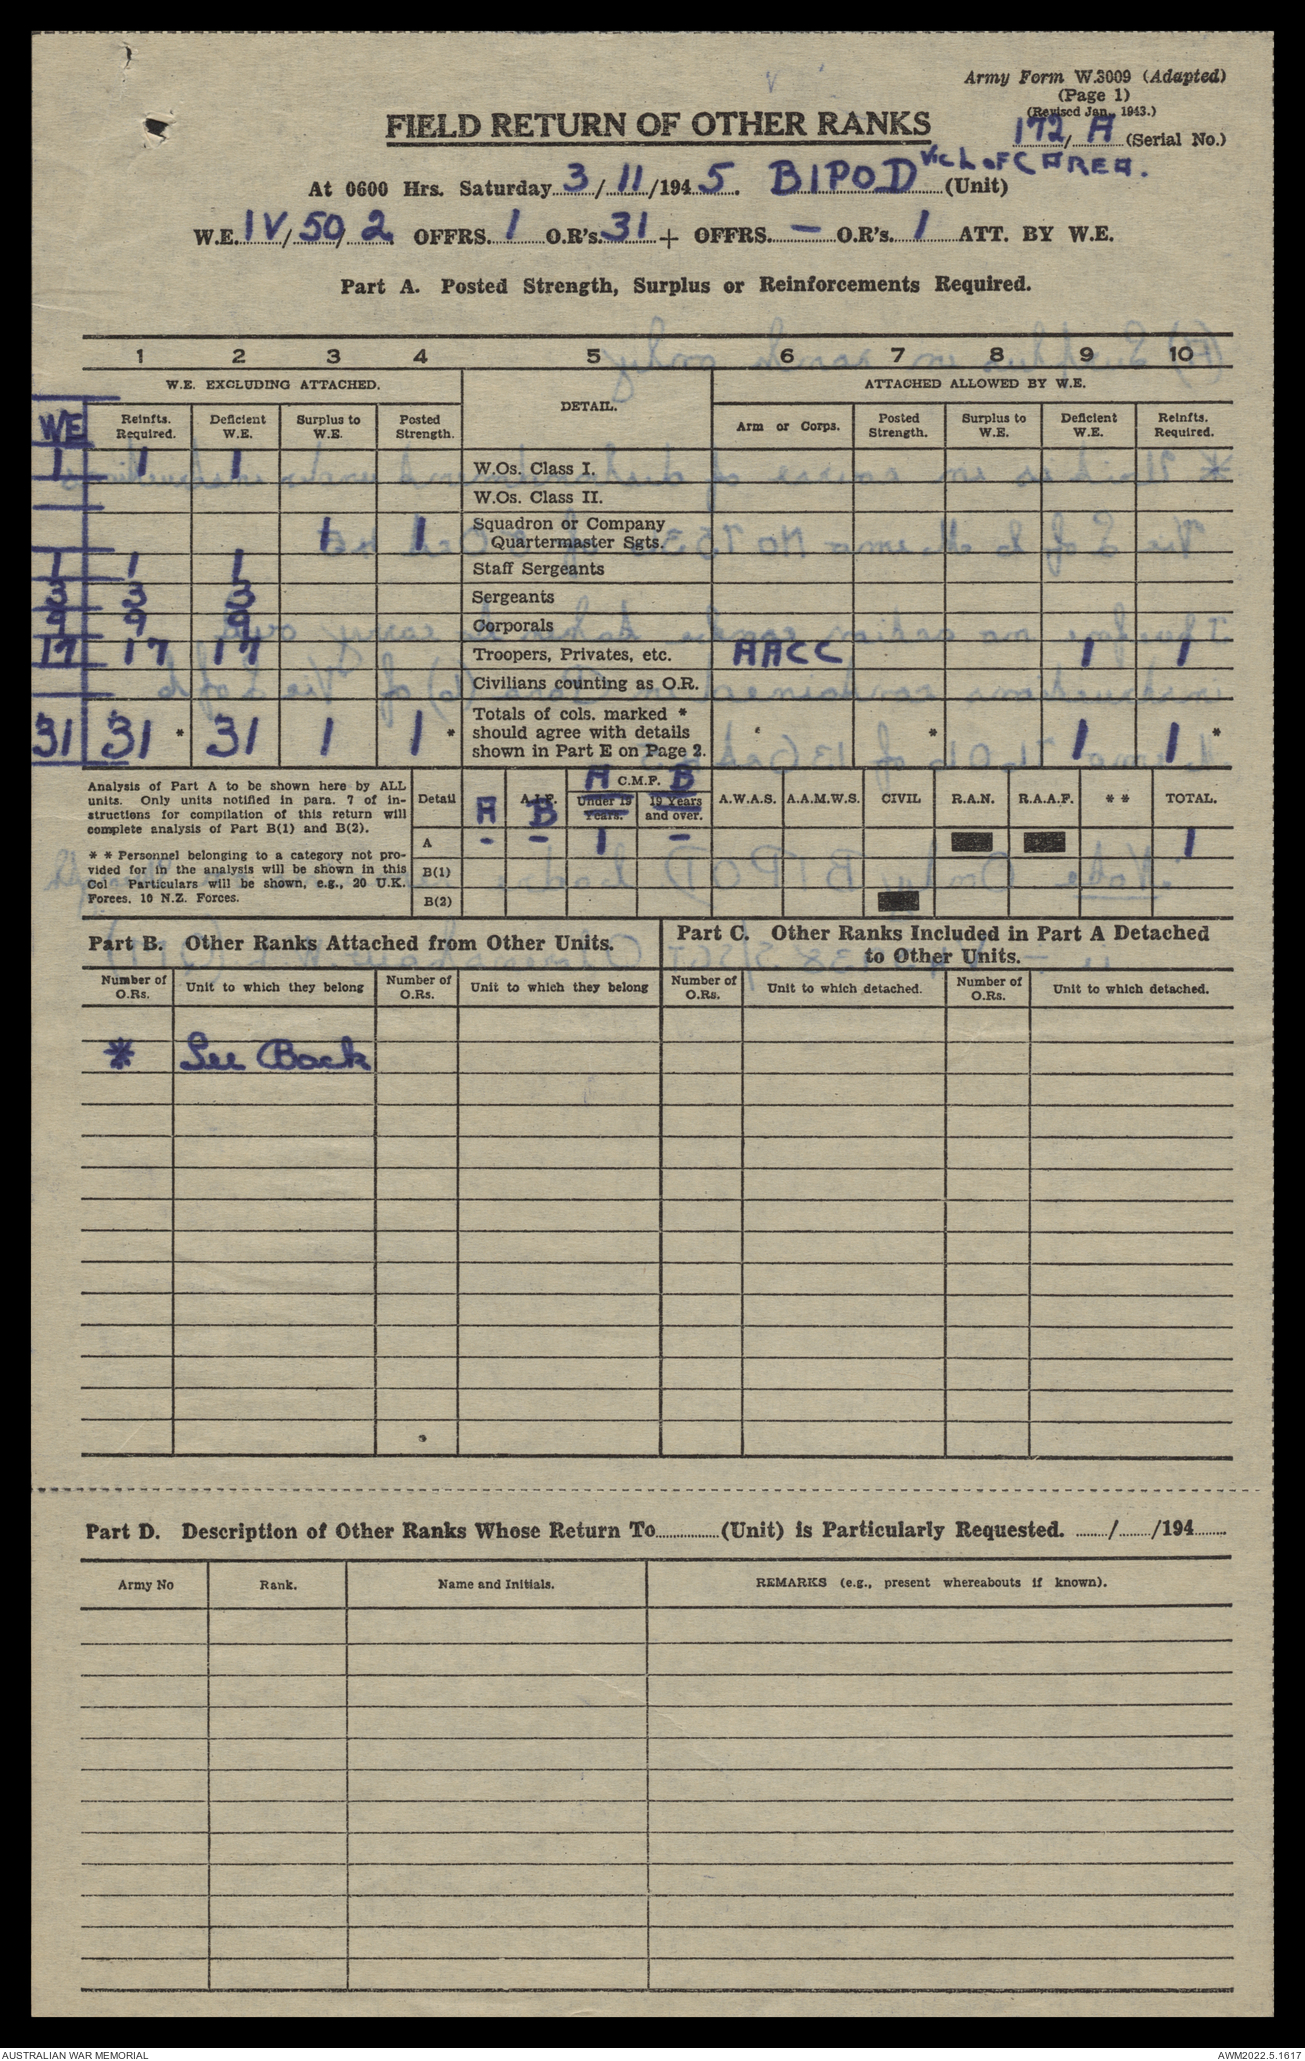 Army Form W.3009 (Adapted)
(Page 1)
(Revised Jan., 1943.)
172/A (Serial No.)
FIELD RETURN OF OTHER RANKS
At 0600 Hrs. Saturday 3/11/1945. BIPOD Vic L of C AREA. (Unit)
W.E. IV/50/2 OFFRS. 1 O.R's. 31 + OFFRS. — O.R's. 1 ATT. BY W.E.
Part A. Posted Strength, Surplus or Reinforcements Required.
1 2 3 4 5 6 7 8 9 10
W.E. EXCLUDING ATTACHED. DETAIL. ATTACHED ALLOWED BY W.E.
WE Reinfts. Required. Deficient W.E. Surplus to W.E. Posted Strength. Arm or Corps. Posted Strength. Surplus to W.E. Deficient W.E. Reinfts. Required.
1 1 1 W.Os. Class I.
W.Os. Class II.
1 1 Squadron or Company Quartermaster Sgts.
1 1 1 Staff Sergeants
3 3 3 Sergeants
9 9 9 Corporals
17 17 17 Troopers, Privates, etc. AACC 1 1
Civilians counting as O.R.
31 31 * 31 1 1 * Totals of cols. marked * should agree with details shown in Part E on Page 2. * 1 1 *
Analysis of Part A to be shown here by ALL
units. Only units notified in para. 7 of in-
structions for compilation of this return will
complete analysis of Part B(1) and B(2).
* * Personnel belonging to a category not pro-
vided for in the analysis will be shown in this
Col Particulars will be shown, e.g., 20 U.K.
Forces, 10 N.Z. Forces.
A C.M.F. B
Detail A A.I.F. B Under 19 Years. 19 Years and over. A.W.A.S. A.A.M.W.S. CIVIL R.A.N. R.A.A.F. * * TOTAL.
A - - 1 - 1
B(1)
B(2)
Part B. Other Ranks Attached from Other Units.
Part C. Other Ranks Included in Part A Detached
to Other Units.
Number of O.Rs. Unit to which they belong Number of O.Rs. Unit to which they belong Number of O.Rs. Unit to which detached. Number of O.Rs. Unit to which detached.
* See Back
Part D. Description of Other Ranks Whose Return To............(Unit) is Particularly Requested. ......./......./194.......
Army No Rank. Name and Initials. REMARKS (e.g., present whereabouts if known).
AUSTRALIAN WAR MEMORIAL AWM2022.5.1617